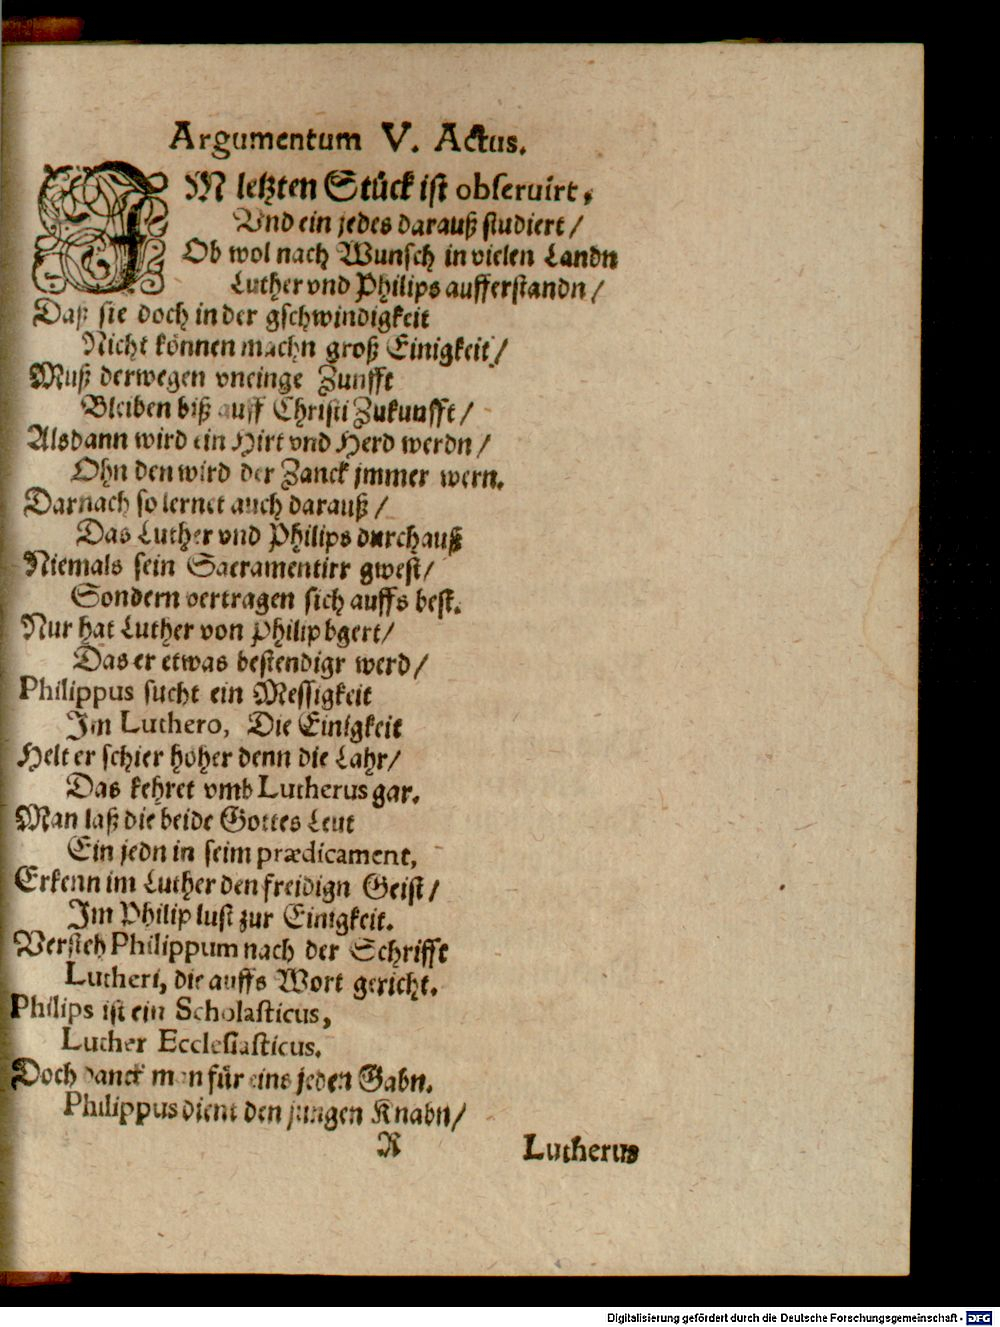 Argumentum V. Actus.
IM letzten Stück ist obseruirt,
Vnd ein jedes darauß studiert /
Ob wol nach Wunsch in vielen Landn
Luther vnd Philips aufferstandn /
Daß sie doch in der gschwindigkeit
Nicht können machn groß Einigkeit /
Muß derwegen vneinge Zunfft
Bleiben biß auff Christi Zukunfft /
Alsdann wird ein Hirt vnd Herd werdn /
Ohn den wird der Zanck jmmer wern.
Darnach so lernet auch darauß /
Das Luther vnd Philips durchauß
Niemals sein Sacramentirr gwest /
Sondern vertragen sich auffs best.
Nur hat Luther von Philip bgert /
Das er etwas bestendigr werd /
Philippus sucht ein Messigkeit
Im Luthero, Die Einigkeit
Helt er schier höher denn die Lahr /
Das kehret vmb Lutherus gar.
Man laß die beide Gottes Leut
Ein jedn in seim prædicament,
Erkenn im Luther den freidign Geist /
Im Philip lust zur Einigkeit.
Versteh Philippum nach der Schrifft
Lutheri, die auffs Wort gericht.
Philips ist ein Scholasticus,
Luther Ecclesiasticus.
Doch danck man für eins jeden Gabn.
Philippus dient den jungen Knabn /
R Lutherus
Digitalisierung gefördert durch die Deutsche Forschungsgemeinschaft - DFG